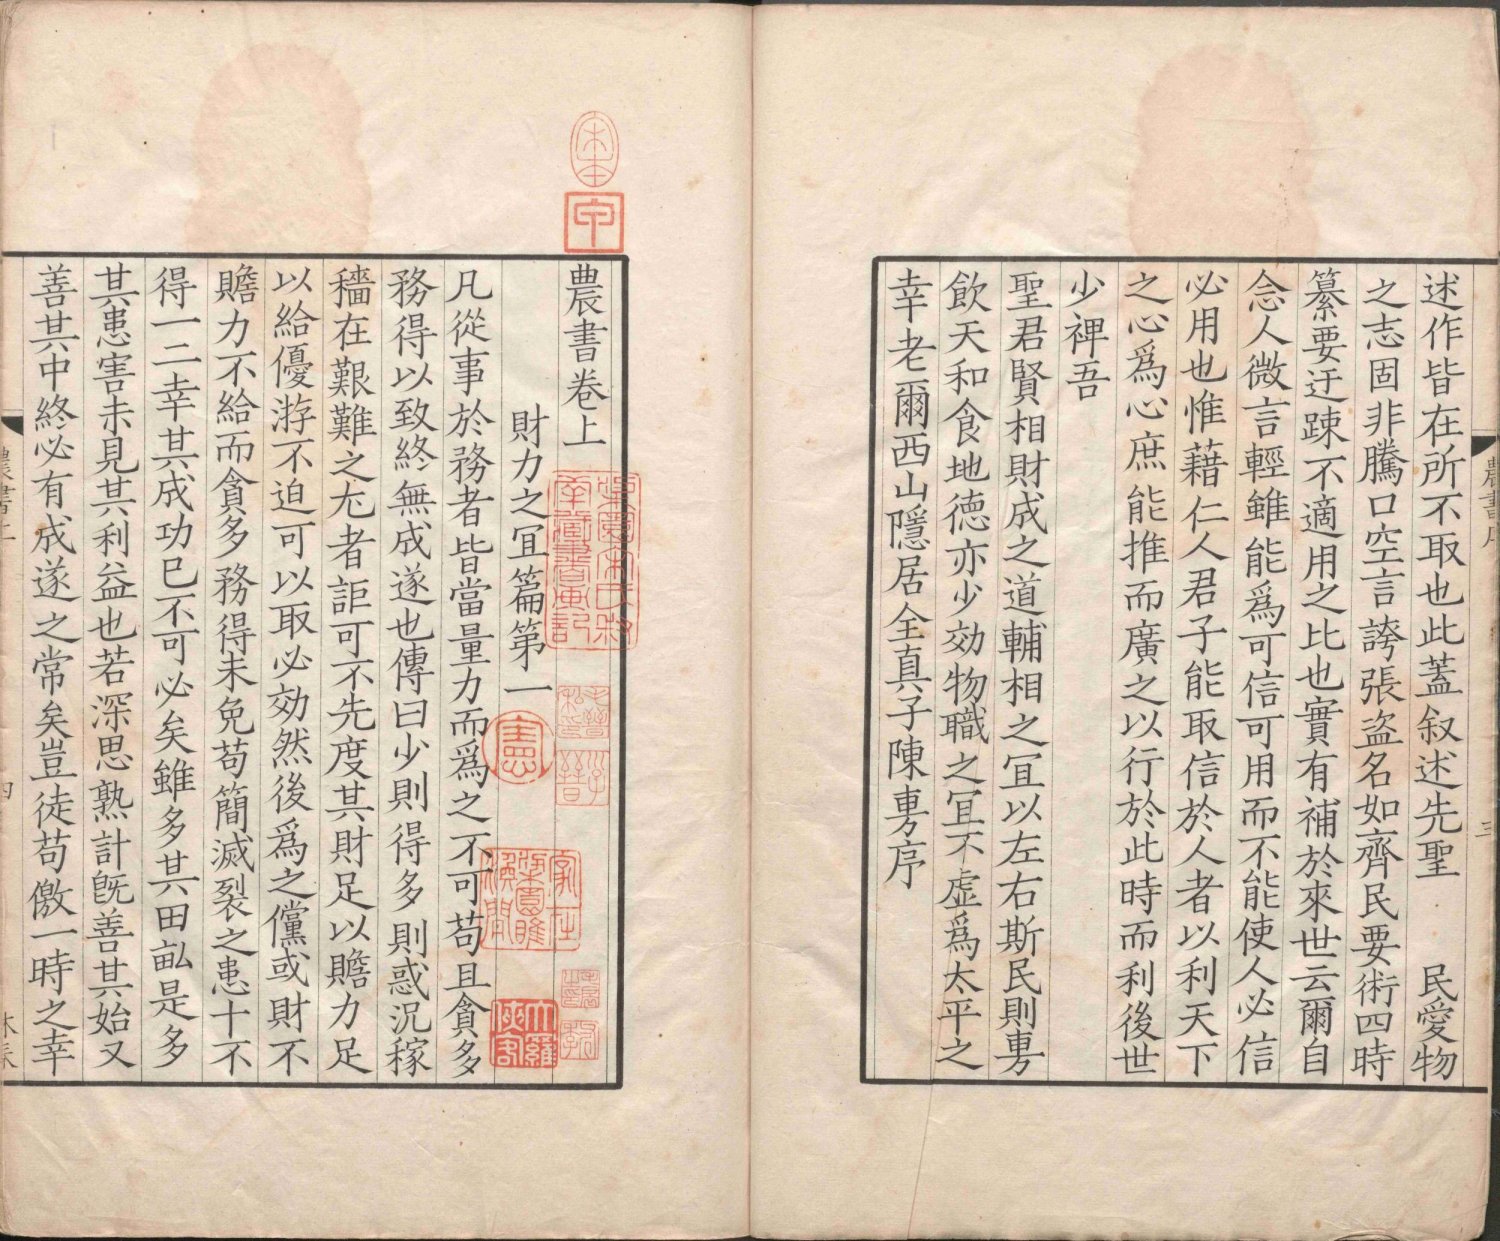 述作皆在所不取也此蓋叙述先聖 民愛物
之志固非騰口空言誇張盗名如齊民要術四時
纂要迂踈不適用之比也實有補於來世云爾自
念人微言輕雖能爲可信可用而不能使人必信
必用也惟藉仁人君子能取信於人者以利天下
之心爲心庶能推而廣之以行於此時而利後世
少裨吾
聖君賢相財成之道輔相之冝以左右斯民則旉
飲天和食地德亦少効物職之冝不虚爲太平之
幸老爾西山隱居全真子陳旉序
農書卷上
財力之冝篇第一
凡從事於務者皆當量力而爲之不可苟且貪多
務得以致終無成遂也傳曰少則得多則惑況稼
穡在艱難之尢者詎可不先度其財足以贍力足
以給優游不迫可以取必効然後爲之儻或財不
贍力不給而貪多務得未免苟簡滅裂之患十不
得一二幸其成功已不可必矣雖多其田畝是多
其患害未見其利益也若深思熟計旣善其始又
善其中終必有成遂之常矣豈徒苟儌一時之幸